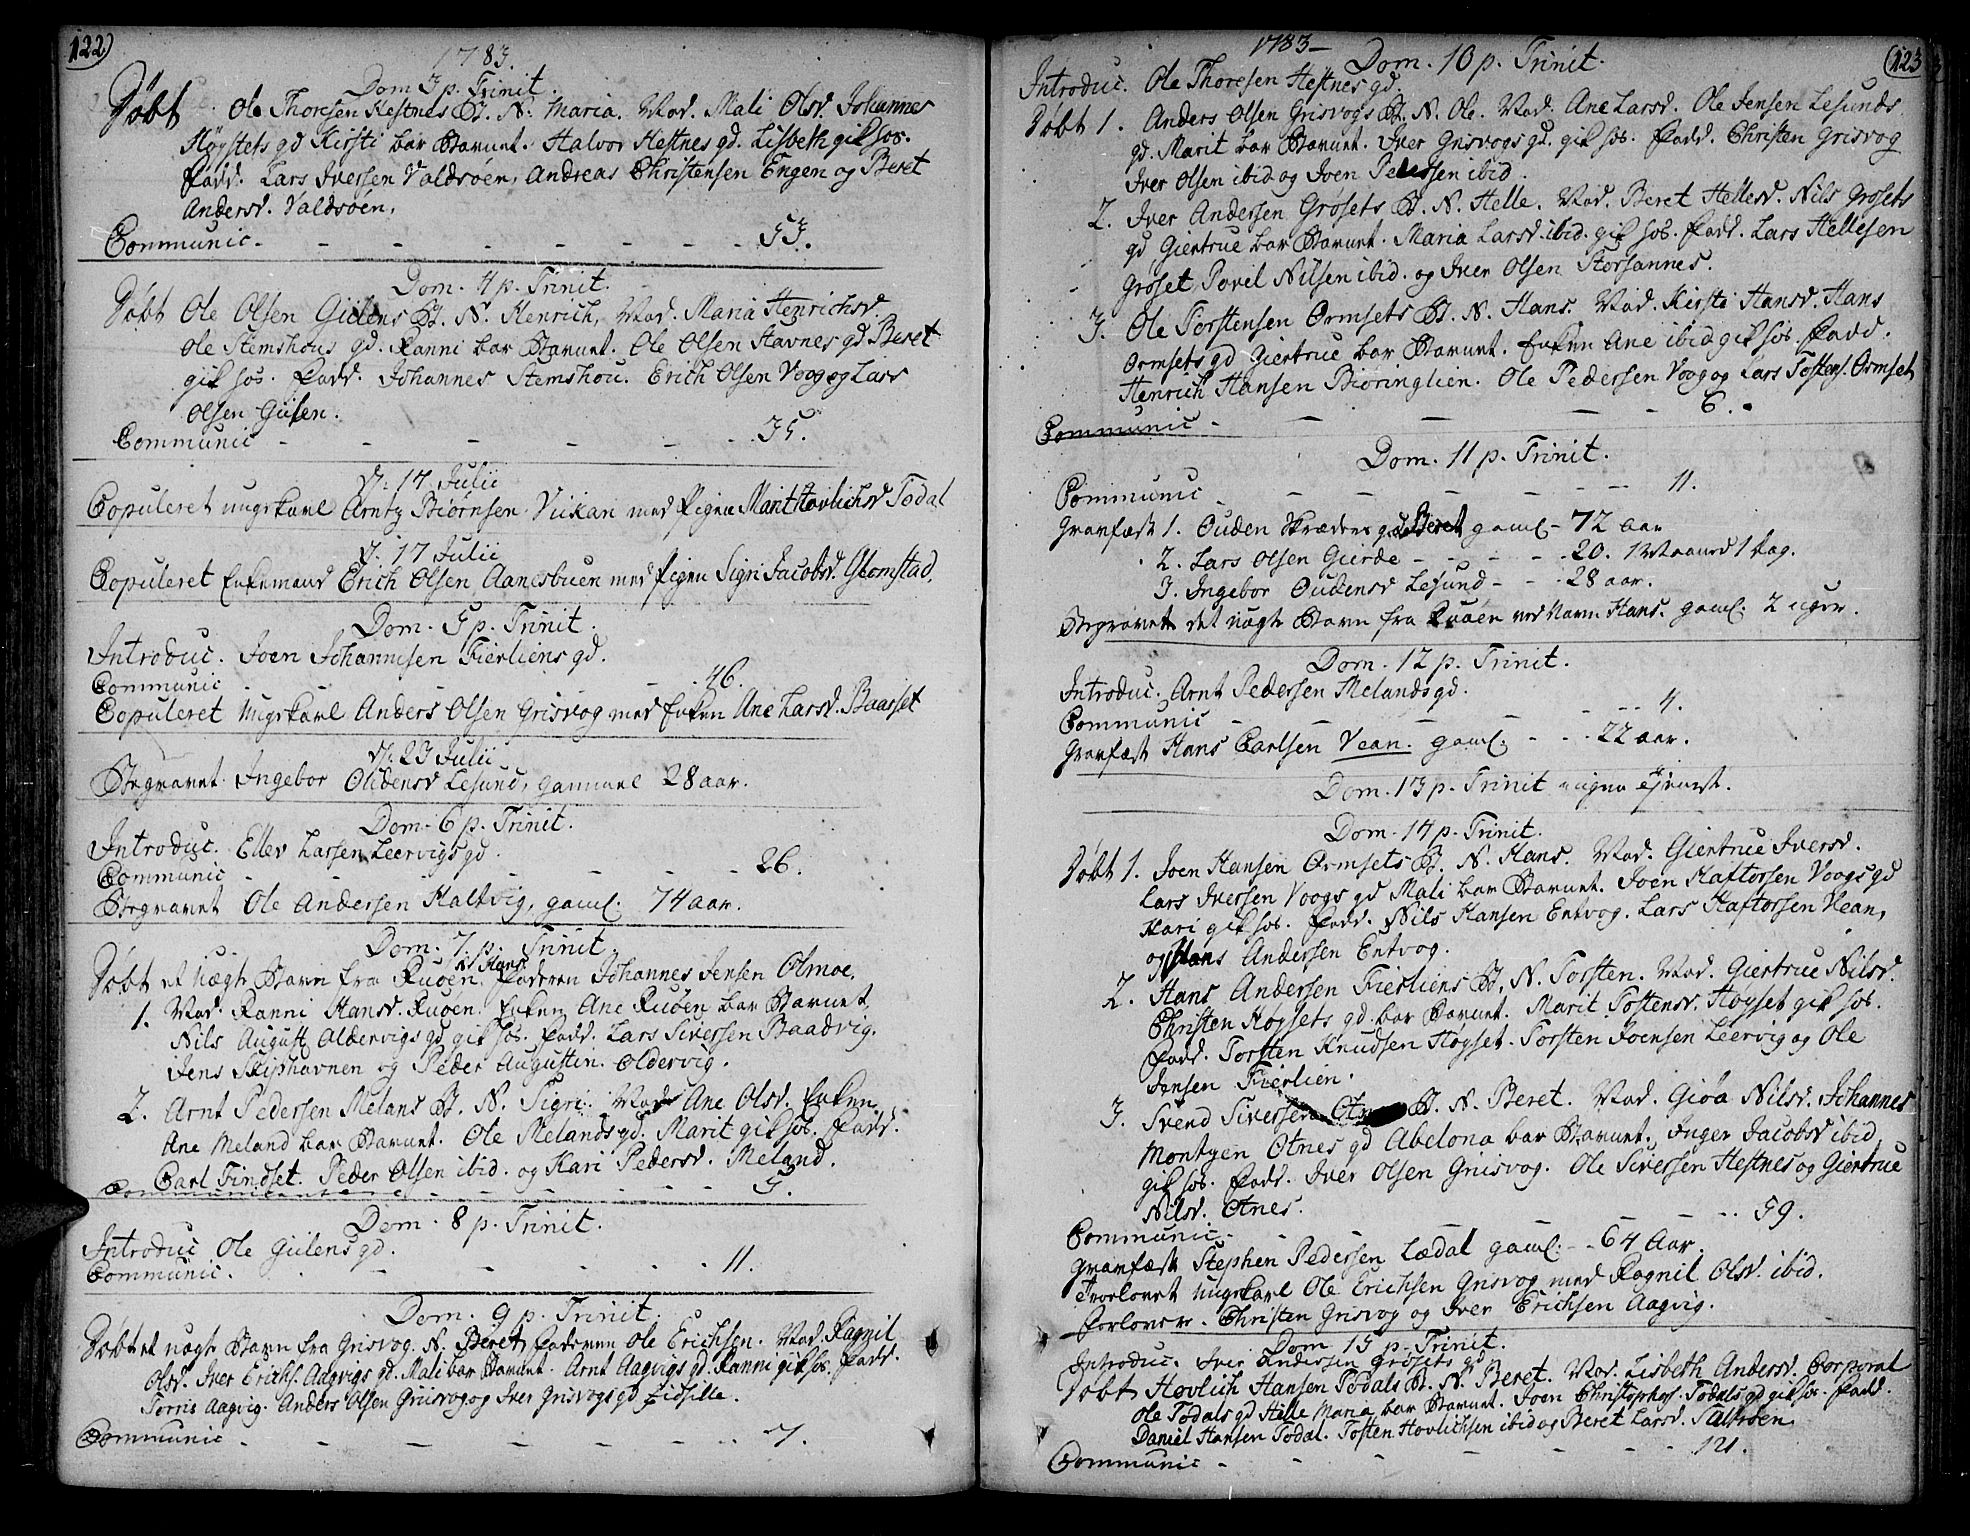 122)
1783.
Dom 3 p. Trinit.
Døbt. Ole Thoresen Hestnes B. N. Maria. Mod. Mali Olsd. Johannes
Høysets gd Kirsti bar Barnet. Halvor Hestnes gd. Lisbeth gik hos.
Fadd. Lars Iversen Valdsøen, Andreas Christensen Engen og Beret
Andersd. Valdsøen.
Communic. - - - - - - 53.
Dom. 4 p. Trinit.
Døbt Ole Olsen Giilens B. N. Henrich, Mod. Maria Henrichsd.
Ole Stemshous gd. Ranni bar Barnet. Ole Olsen Havnes gd Beret
gik hos. Fadd. Johannes Stemshou. Erich Olsen Voog og Lars
Olsen Giilen.
Communic - - - - - - 35.
D. 14 Julii
Copuleret ungkarl Arntz Biørnsen Viikan med Pigen Marit Hovlichsd Todal
D. 17 Julii
Copuleret Enkemand Erich Olsen Aanesbuen med Pigen Sigri Jacobsd. Glomstad.
Dom. 5 p. Trinit.
Introduc. Joen Johannesen Fierliens gd.
Communic - - - 46.
Copuleret Ungkarl Anders Olsen Grisvog med Enken Ane Larsd. Baarset
D. 23 Julii
Begravet Ingebor Oudensd Lesund, gammel 28 aar.
Dom. 6 p. Trinit.
Introduc. Ellev Larsen Leervigs gd.
Communic - - - - - - 26.
Begravet Ole Andersen Haltvig, gaml. 74 aar.
Dom. 7 p. Trinit.
N. Hans
Døbt et uægte Barn fra Ruøen. Faderen Johannes Jensen Olmoe,
1. Mod. Ranni Hansd. Ruøen. Enken Ane Ruøen bar Barnet
Nils August. Aldervigs gd gik hos. Fadd. Lars Siversen Baadvig.
Jens Skiphavnen og Peder Augustin. Oldervig.
2. Arnt Pedersen Melans B. N. Sigri. Mod Ane Olsd. Enken
Ane Meland bar Barnet. Ole Melands gd. Marit gik hos. Fadd.
Carl Findset. Peder Olsen ibid. og Kari Pedersd. Meland.
Communicantere - - - - - 5.
Dom. 8 p. Trinit.
Introduc Ole Giilens gd.
Communic. - - - - - - 11.
Dom. 9 p. Trinit.
Døbt et uægte Barn fra Grisvog. N. Beret, Faderen Ole Erichsen. Mod. Ragnil
Olsd. Iver Erichs. Aagvigs gd. Mali bar Barnet. Arnt Aagvigs gd. Ranni gik hos. Fadd.
Torris Aagvig. Anders Olsen Grisvog og Iver Grisvogs gd Zidsille.
Communic - - - - - - 7.
1783 -
(123
Dom. 10 p. Trinit.
Introduc. Ole Thoresen Hestnes gd.
Døbt 1. Anders Olsen Grisvogs B. N. Ole. Mod. Ane Larsd. Ole Jensen Lesunds
gd. Marit bar Barnet. Iver Grisvogs gd. gik hos. Fadd. Christen Grisvog
Iver Olsen ibid og Joen Pedersen ibid.
2. Iver Andersen Grøsets B. N. Helle. Mod. Beret Hellesd. Nils Grøsets
gd, Giertrue bar Barnet. Maria Larsd. ibid. gik hos. Fadd. Lars Hellesen
Grøset, Povel Nilsen ibid. og Iver Olsen Storsannes.
3. Ole Torstensen Ormsets B. N. Hans. Mod. Kirsti Hansd. Hans
Ormsets gd Giertrue bar Barnet. Enken Ane ibid gik hos. Fadd.
Henrich Hansen Biøringlien. Ole Pedersen Voog og Lars Tostens. Ormset
Communic - - - - - 6.
Dom. 11 p. Trinit.
Communic - - - - - - 11.
Gravfæst 1. Ouden Skræders gd Beret gaml - 72 aar
2. Lars Olsen Gierde - - - - 20. 1 Maaned 1 Dag.
3. Ingebor Oudensd Lesund - - 28 aar.
Begravet det uægte Barn fra Ruøen ved Navn Hans. gaml. 2 uger.
Dom. 12 p. Trinit.
Introduc. Arnt Pedersen Melands gd.
Communic - - - - - - 4.
Gravfæst Hans Carlsen Vean. gaml. - - - 22 aar.
Dom. 13 p. Trinit ingen Tjenest.
Dom. 14 p. Trinit.
Døbt 1. Joen Hansen Ormsets B. N. Hans. Mod. Giertrue Iversd.
Lars Iversen Voogs gd Mali bar Barnet. Joen Haftorsen Voogs gd
Kari gik hos. Fadd. Nils Hansen Entvog. Lars Haftorsen Vean,
og Hans Andersen Entvog.
2. Hans Andersen Fierliens B. N. Torsten. Mod. Giertrue Nilsd.
Christen Høysets gd. bar Barnet. Marit Tostensd. Høyset gik hos.
Fadd. Torsten Knudsen Høyset. Torsten Joensen Leervig og Ole
Jensen Fierlien.
3. Svend Siversen Otnes B. N. Beret. Mod. Giøa Nilsd. Johannes
Montgen Otnes gd Abelona bar Barnet. Inger Jacobsd ibid
gik hos. Fadd. Iver Olsen Grisvog. Ole Siversen Hestnes og Giertrue
Nilsd. Otnes.
Communic - - - - - - 59.
Gravfæst Stephen Pedersen Lædal gaml. - - 64 Aar.
Trolovet Ungkarl Ole Erichsen Grisvog med Ragnil Olsd. ibid.
Forlovere. Christen Grisvog og Iver Erichsen Aagvig.
Dom 15 p. Trinit.
Introduc. Iver Andersen Grøsets gd.
Døbt Hovlich Hansen Todals B. N. Beret. Mod. Lisbeth Andersd. Corporal
Ole Todals gd Hille Maria bar Barnet. Joen Christophers. Todals gd gik hos. Fadd.
Daniel Hansen Todal. Tosten Hovlichsen ibid og Beret Larsd. Talfrøen
Communic - - - - - - 121.